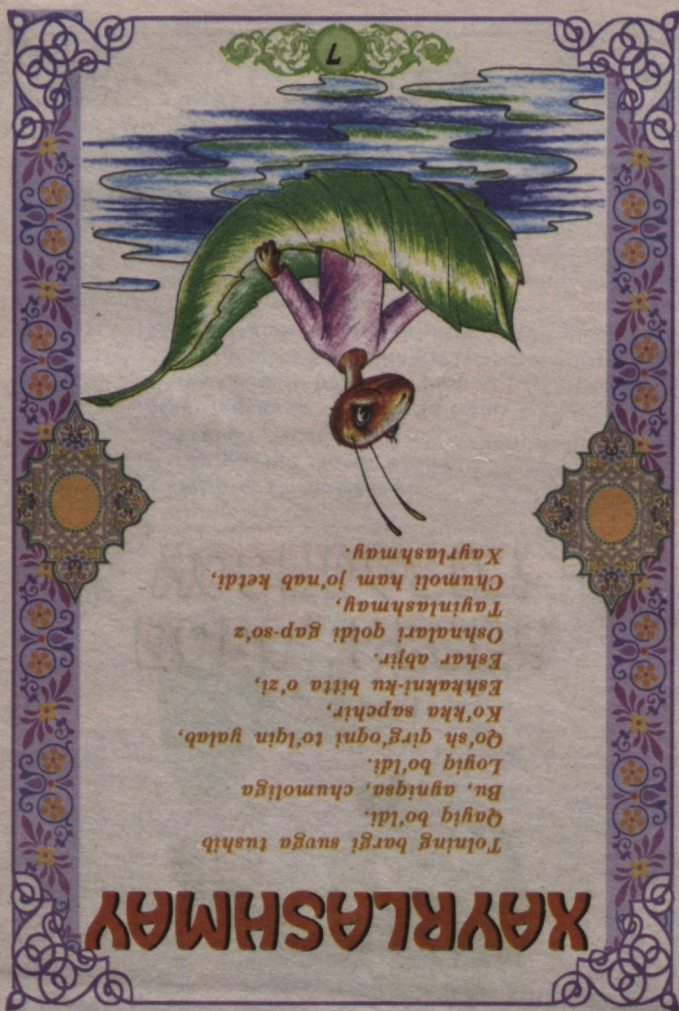 XAYRLASHMAY
Tolning bargi suvga tushib
Qayiq bo'ldi.
Bu, ayniqsa, chumoliga
Loyiq bo'ldi.
Qo'sh qirg'oqni to'lqin yalab,
Ko'kka sapchir,
Eshkakni-ku bitta o'zi,
Eshar abjir.
Oshnalari qoldi gap-so'z
Tayinlashmay,
Chumoli ham jo'nab ketdi,
Xayrlashmay.
7